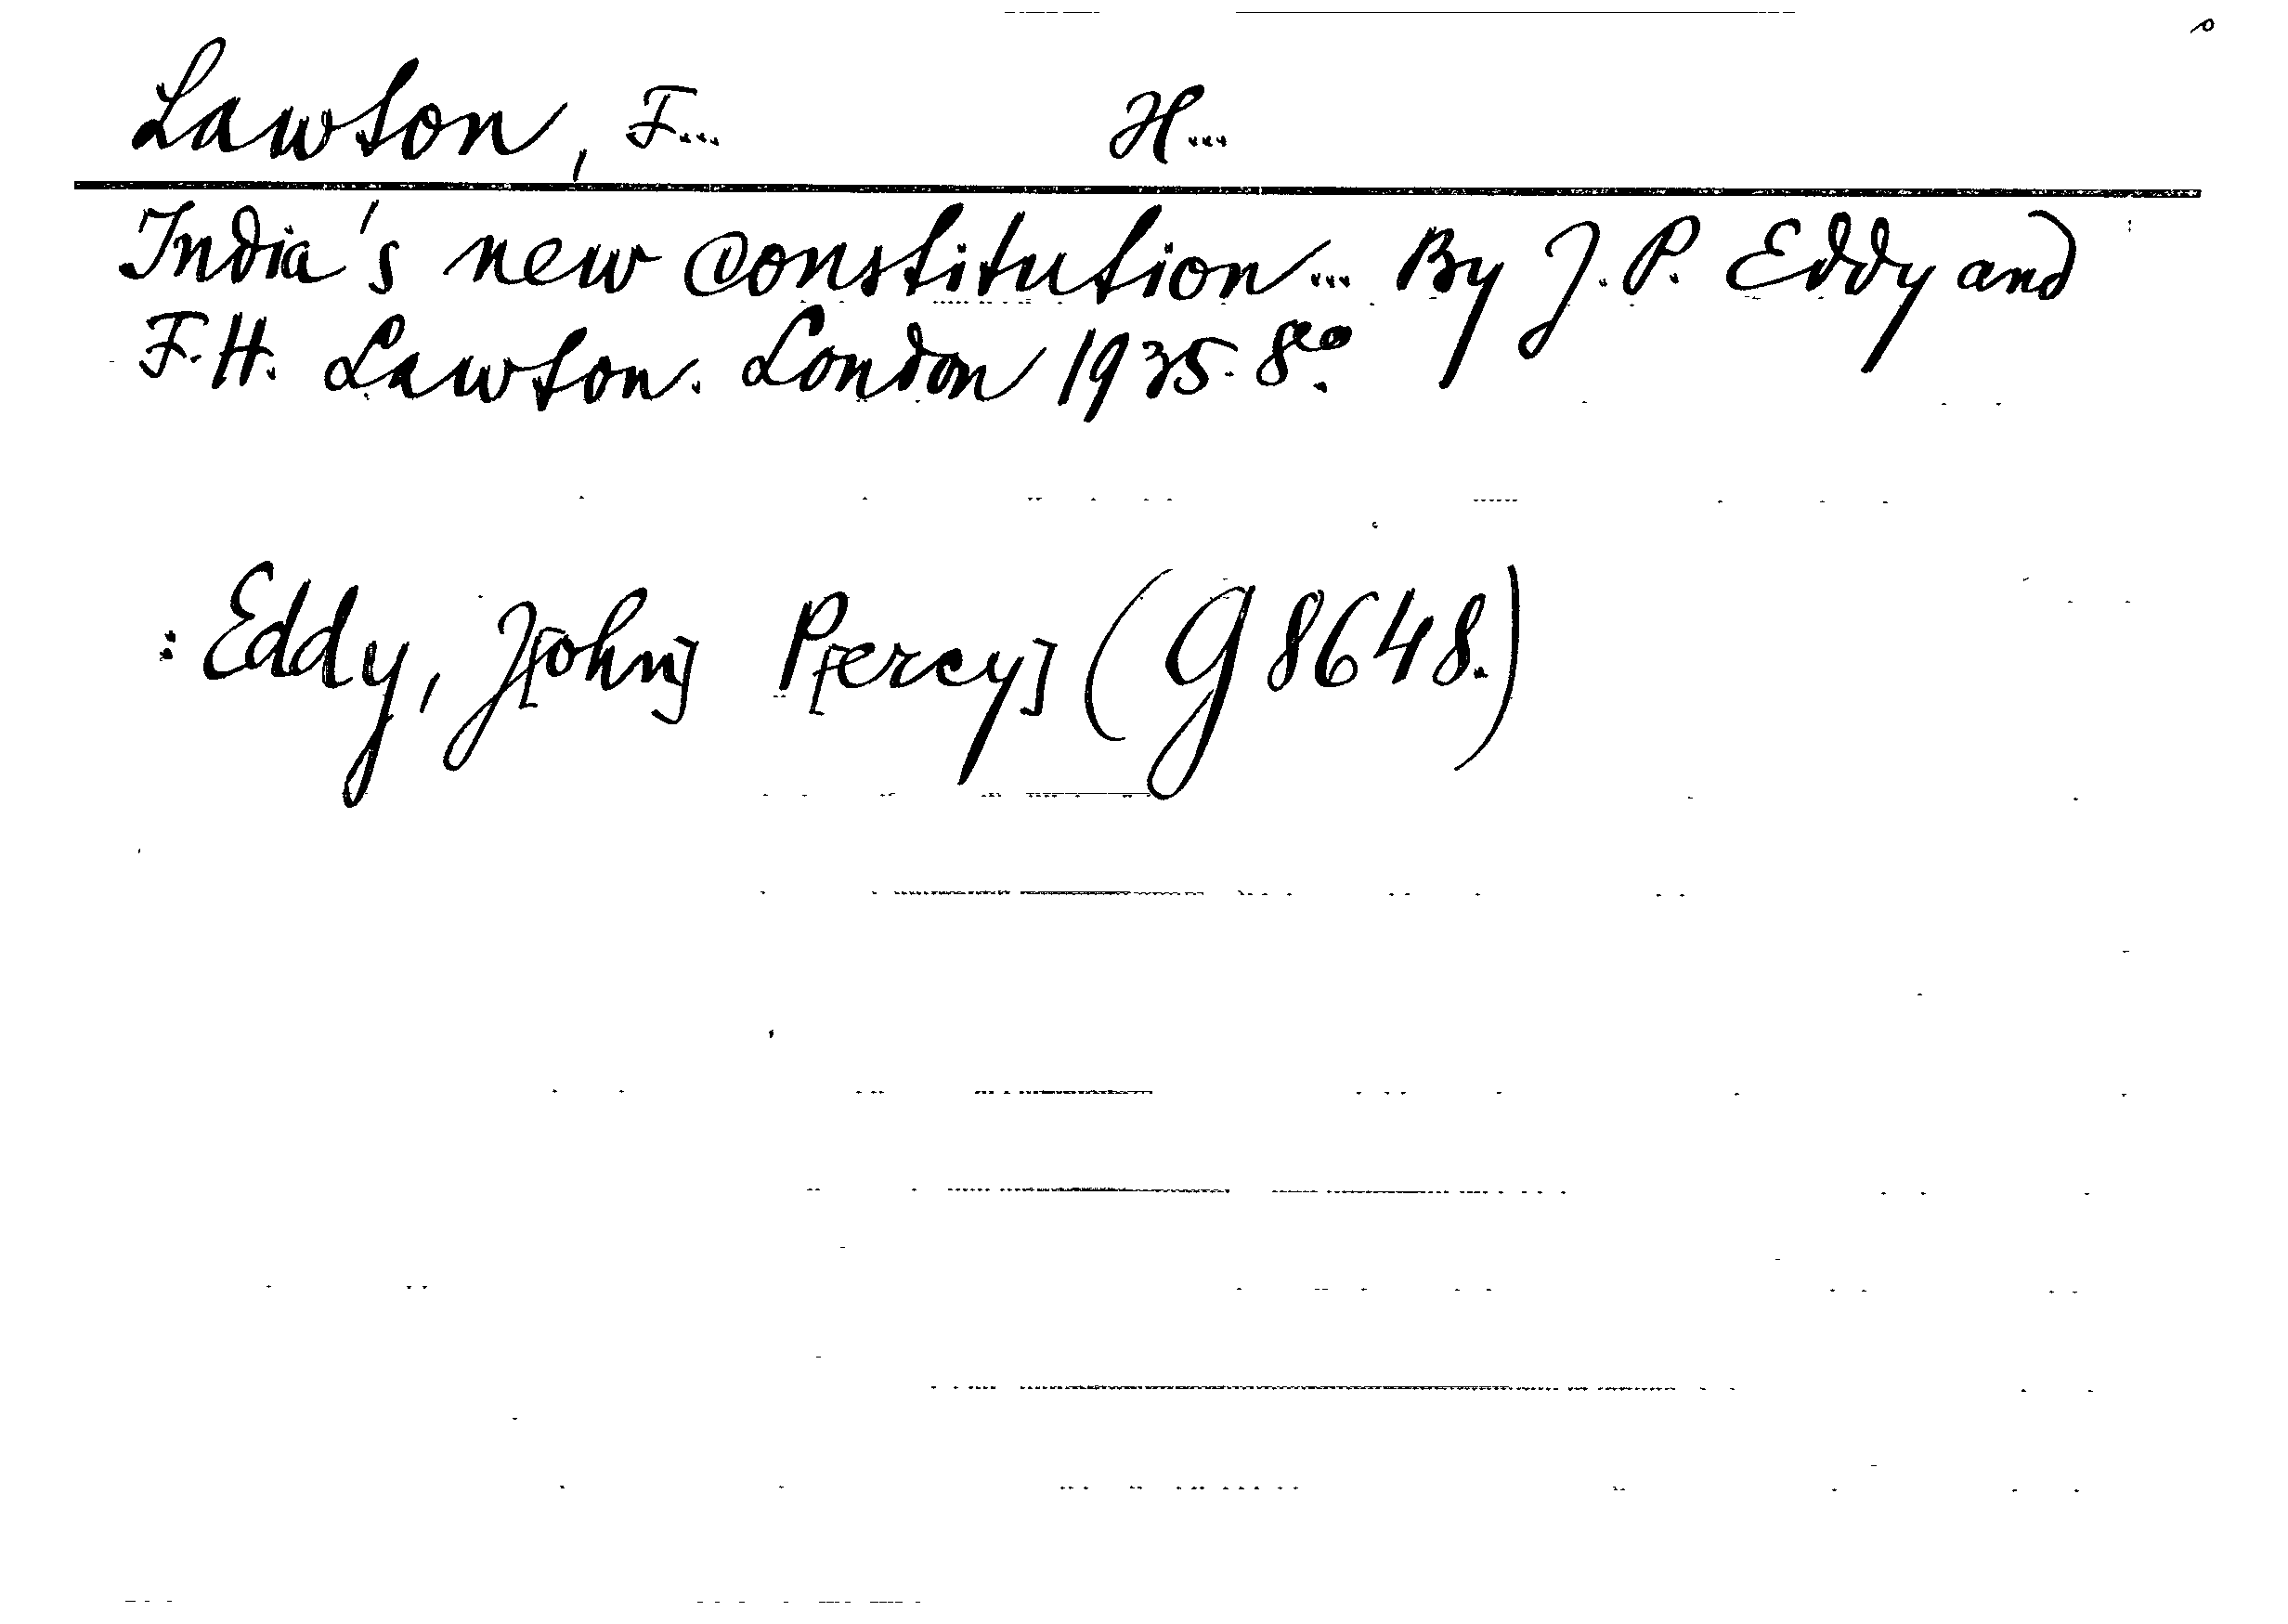 Lawson, F... H...
India's new constitution... By J. P. Eddy and
F. H. Lawson. London 1935. 8vo.
: Eddy, J[ohn] P[ercy] (G 8648.)